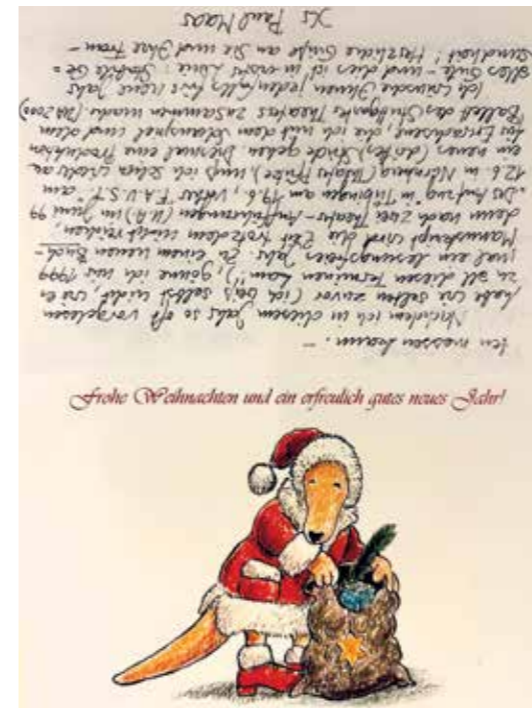 ten messen kann. –
Nachdem ich in diesem Jahr so oft vorgelesen
habe wie selten zuvor (ich weiß selbst nicht, wie es
zu all diesen Terminen kam!), gönne ich mir 1999
mal ein lesungsfreies Jahr. Zu einem neuen Buch-
Manuskript wird die Zeit trotzdem nicht reichen,
denn nach zwei Theater-Aufführungen (U.A.) im Juni 99
Der Aufzug" in Tübingen am 19.6., "Vater F.A.U.S.T." am
12.6. in Nürnberg (Pfütze), muß ich schon wieder an
ein neues (drittes) Stück gehen. Diesmal eine Produktion
für Erwachsene, die ich mit dem Schauspiel und dem
Ballett des Stuttgarter Theaters zusammen mache (UA 2000)
Ich wünsche Ihnen jedenfalls fürs neue Jahr
alles Gute – und dies ist in erster Linie: Stabile Ge=
sundheit! Herzliche Grüße an Sie und Ihre Frau –
Paul Maar
Frohe Weihnachten und ein erfreulich gutes neues Jahr!